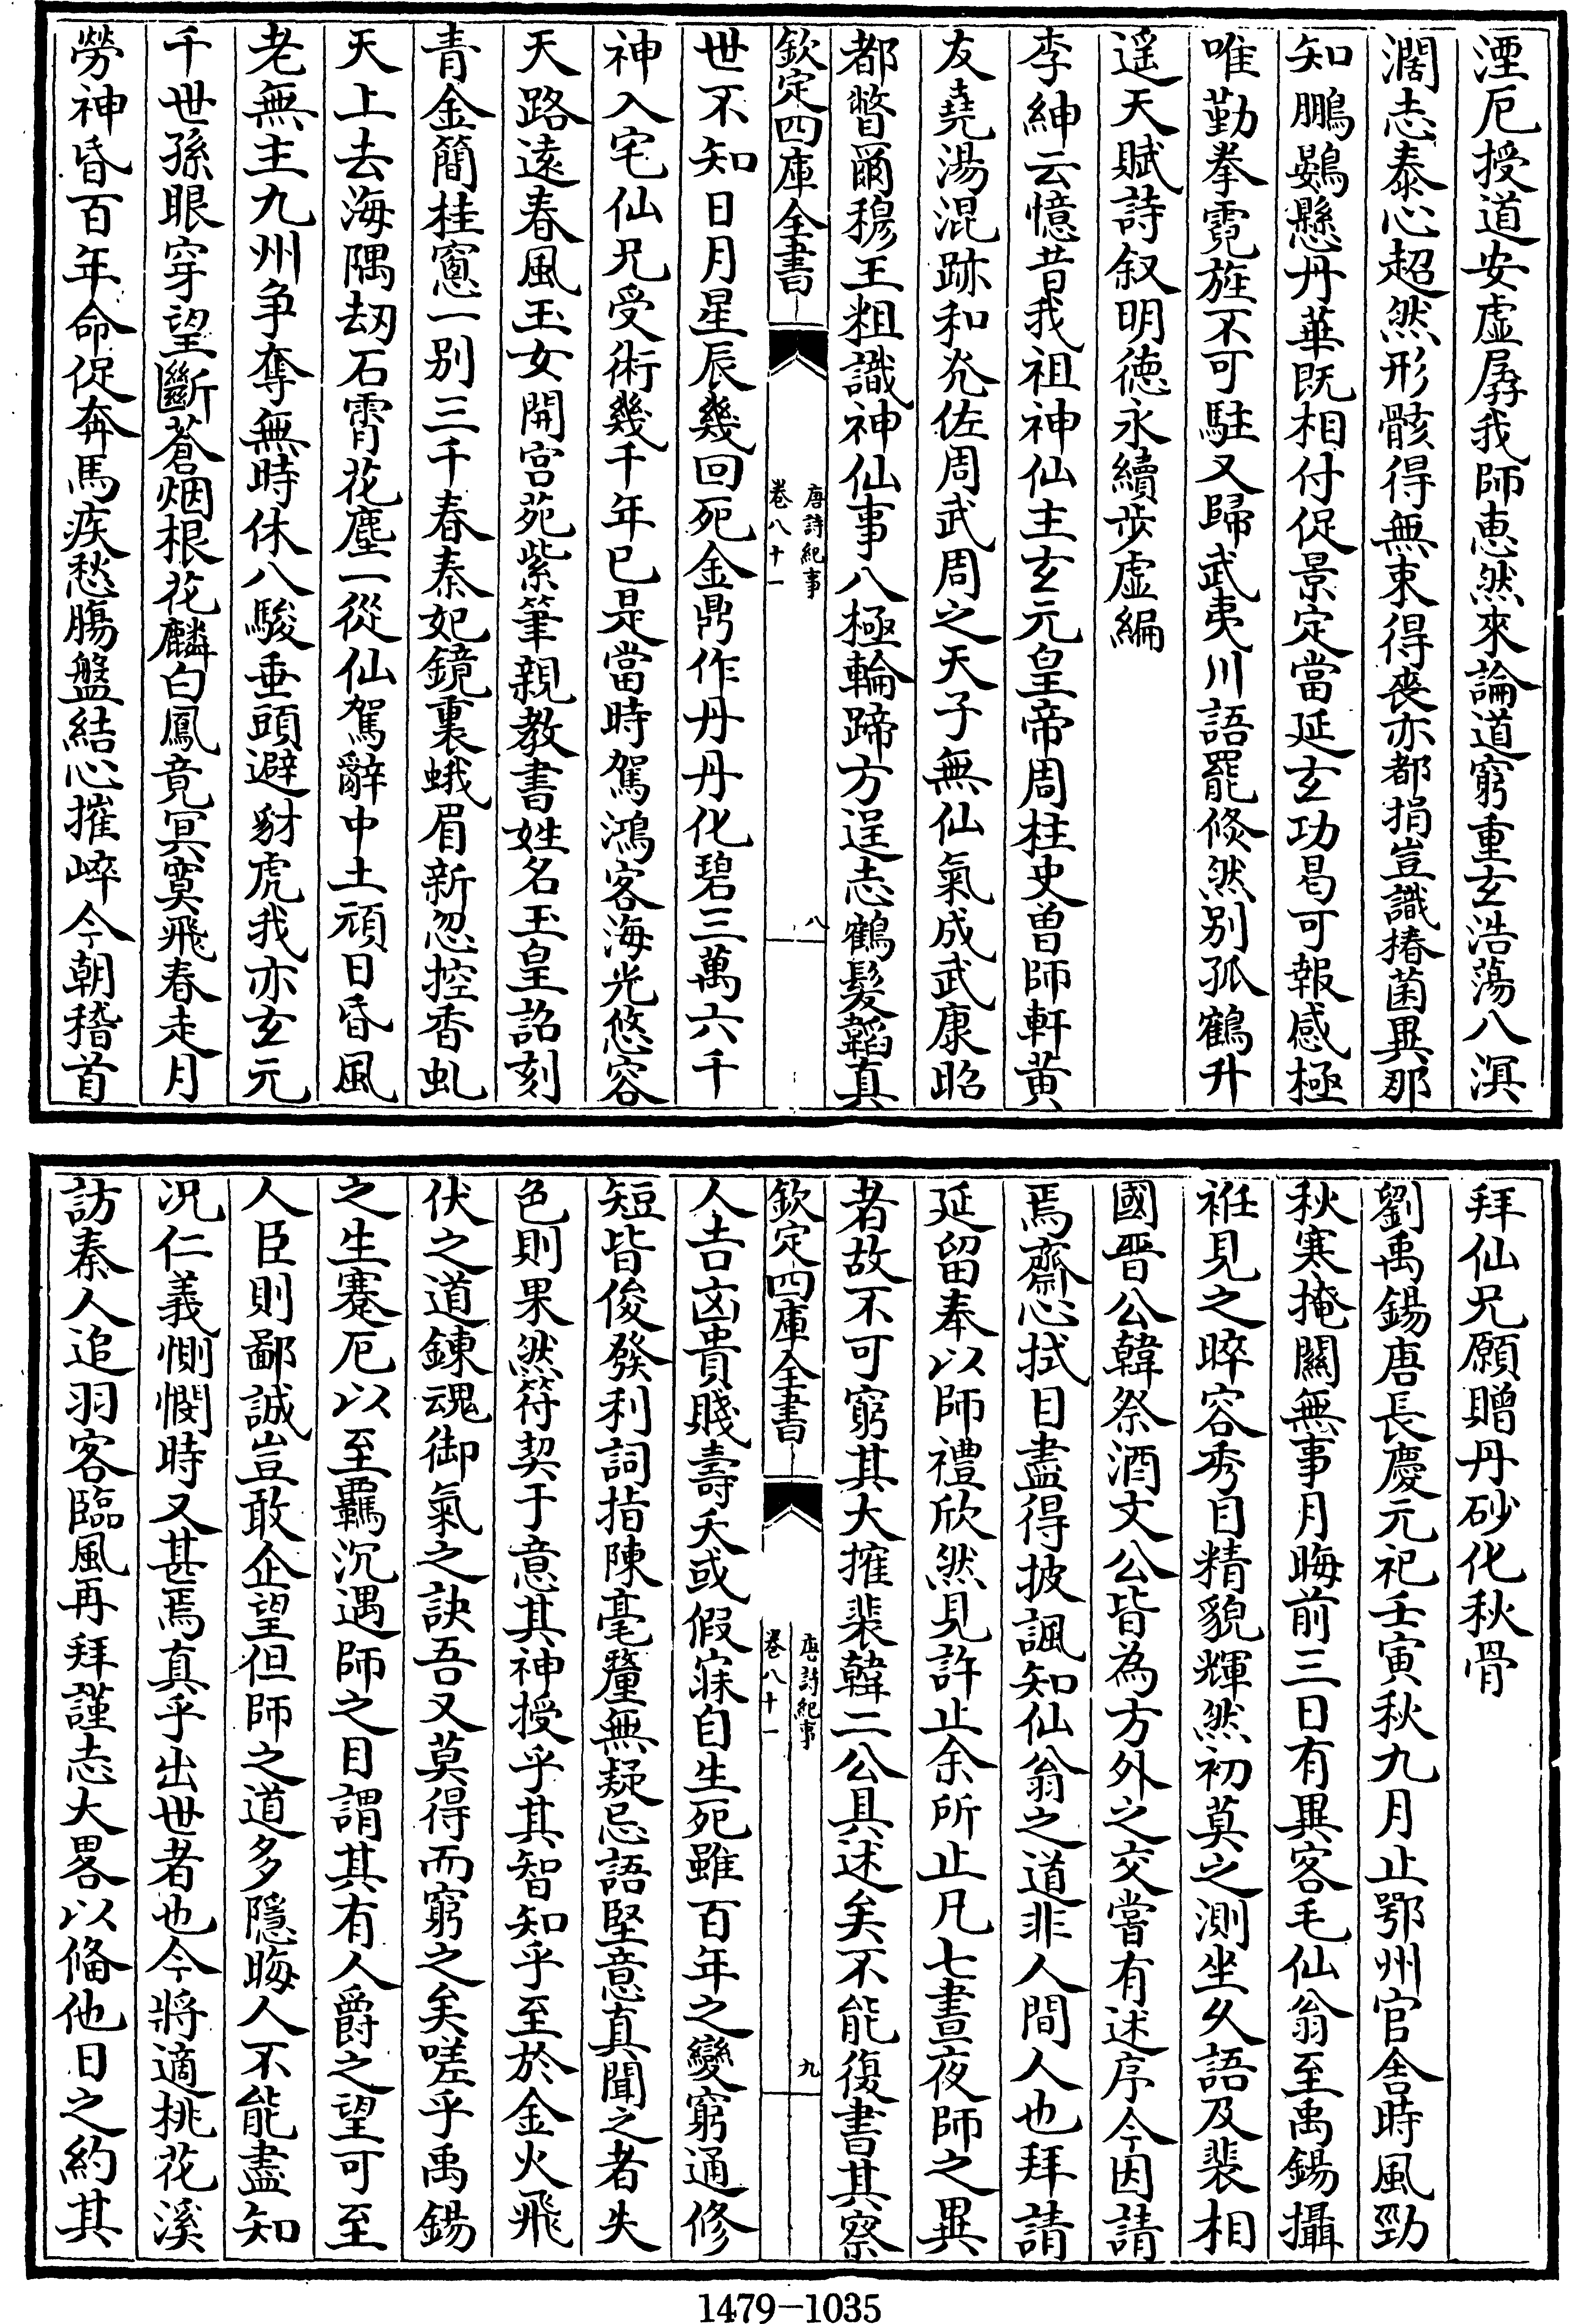 湮厄授道安虛孱我師恵然來論道窮重玄浩蕩八溟
濶志泰心超然形骸得無朿得喪亦都捐豈識椿菌異那
知鵬鷃懸丹華旣相付促景定當延玄功曷可報感極
唯勤拳霓旌不可駐又歸武夷川語罷倐然别孤鶴升
遥天賦詩叙明徳永續步虛編
李紳云憶昔我祖神仙主玄元皇帝周柱史曽師軒黄
友堯湯混跡和光佐周武周之天子無仙氣成武康昭
都瞥爾穆王粗識神仙事八極輪蹄方逞志鶴髪韜真
欽定四庫全書
唐詩紀事
卷八十一
八
世不知日月星辰幾回死金鼎作丹丹化碧三萬六千
神入宅仙兄受術幾千年已是當時駕鴻客海光悠容
天路遠春風玉女開宫苑紫筆親教書姓名玉皇詔刻
青金簡桂窻一别三千春秦妃鏡裏蛾眉新忽控香虬
天上去海隅刼石霄花塵一從仙駕辭中土頑日昏風
老無主九州争奪無時休八駿垂頭避豺虎我亦玄元
千世孫眼穿望斷蒼烟根花麟白鳳竟冥寞飛春走月
勞神昏百年命促奔馬疾愁腸盤結心摧崪今朝稽首
拜仙兄願贈丹砂化秋骨
劉禹錫唐長慶元祀壬寅秋九月止鄂州官舎時風勁
秋寒掩關無事月晦前三日有異客毛仙翁至禹錫攝
袵見之晬容秀目精貌輝然初莫之測坐久語及裴相
國晋公韓祭酒文公皆為方外之交嘗有述序今因請
焉齋心拭目盡得披諷知仙翁之道非人間人也拜請
延留奉以師禮欣然見許止余所止凡七晝夜師之異
者故不可窮其大㩁裴韓二公具述矣不能復書其察
欽定四庫全書
唐詩紀事
卷八十一
九
人吉凶貴賤壽夭或假寐自生死雖百年之變窮通修
短皆俊發利詞指陳毫釐無疑忌語堅意真聞之者失
色則果然符契于意其神授乎其智知乎至於金火飛
伏之道錬魂御氣之訣吾又莫得而窮之矣嗟乎禹錫
之生蹇厄以至羈沉遇師之目謂其有人爵之望可至
人臣則鄙誠豈敢企望但師之道多隱晦人不能盡知
况仁義惻憫時又甚焉真乎出世者也今將適桃花溪
訪秦人追羽客臨風再拜謹志大畧以俻他日之約其
1479-1035